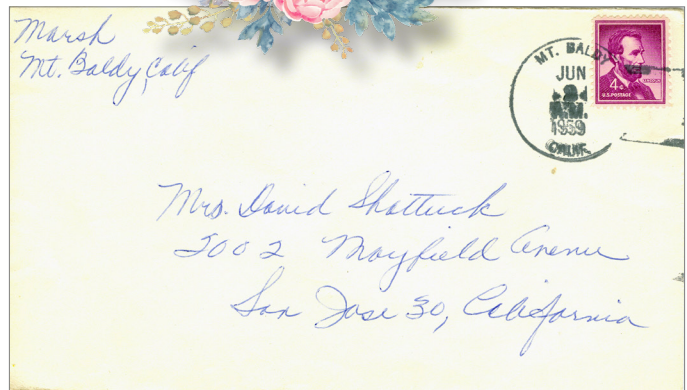 Marsh
Mt. Baldy, Calif
MT. BALDY
JUN
A.M.
1959
CALIF.
4¢
U.S. POSTAGE
LINCOLN
Mrs. David Shattuck
5002 Mayfield Avenue
San Jose 30, California